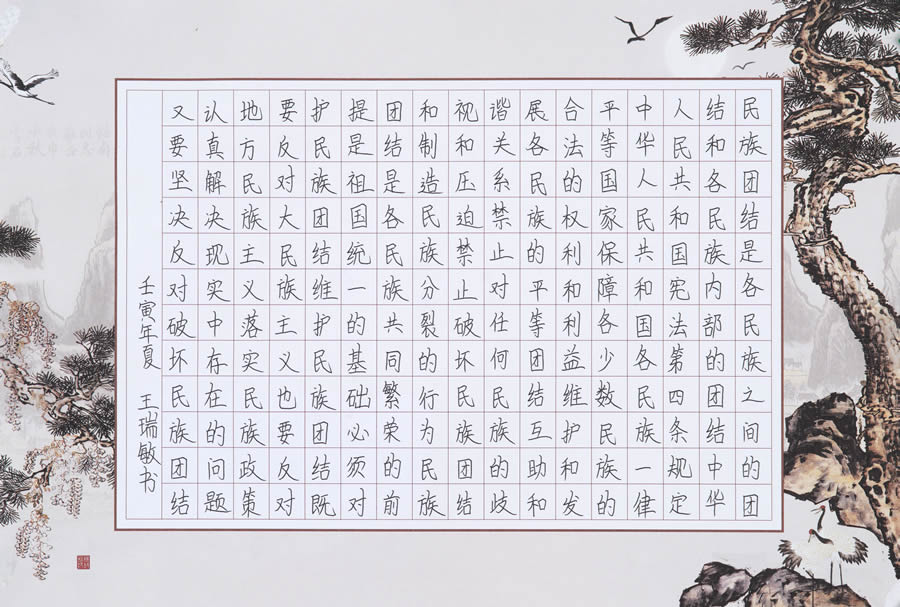 民族团结是各民族之间的团
结和各民族内部的团结中华
人民共和国宪法第四条规定
中华人民共和国各民族一律
平等国家保障各少数民族的
合法的权利和利益维护和发
展各民族的平等团结互助和
谐关系禁止对任何民族的歧
视和压迫禁止破坏民族团结
和制造民族分裂的行为民族
团结是各民族共同繁荣的前
提是祖国统一的基础必须对
护民族团结维护民族团结既
要反对大民族主义也要反对
地方民族主义落实民族政策
认真解决现实中存在的问题
又要坚决反对破坏民族团结
壬寅年夏 王瑞敏书